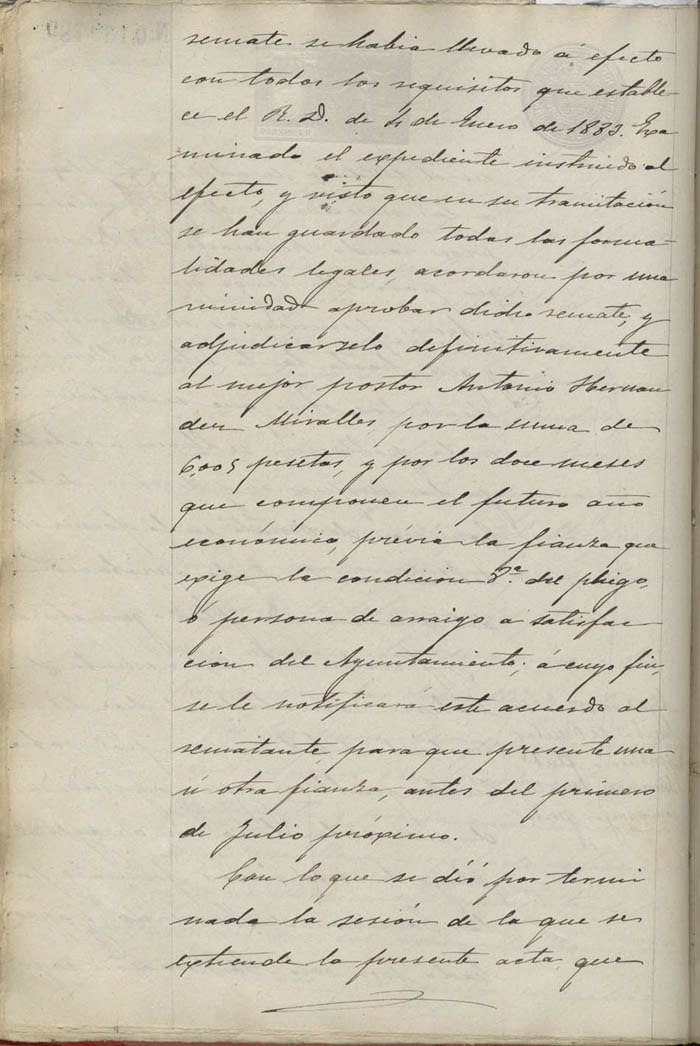 remate se habia llevado á efecto
con todos los requisitos que estable-
ce el R. D. de 4 de Enero de 1883. Exa
minado el expediente instruido al
efecto, y visto que en su tramitación
se han guardado todas las forma-
lidades legales, acordaron por una
nimidad aprobar dicho remate, y
adjudicarselo definitivamente
al mejor postor Antonio Hernan
dez Miralles, por la suma de
6,005 pesetas, y por los doce meses
que componen el futuro año
económico, prévia la fianza que
exige la condicion del pliego,
ó persona de arraigo a satisfac
cion del Ayuntamiento; á cuyo fin,
se le notificará este acuerdo al
rematante, para que presente una
ú otra fianza, antes del primero
de Julio próximo.
Con lo que se dió por termi
nada la sesión de la que se
extiende la presente acta, que